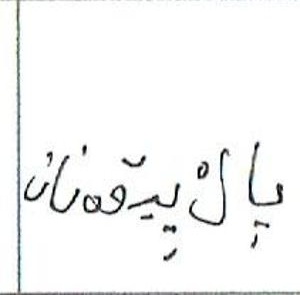 پاڵ پێوەنان